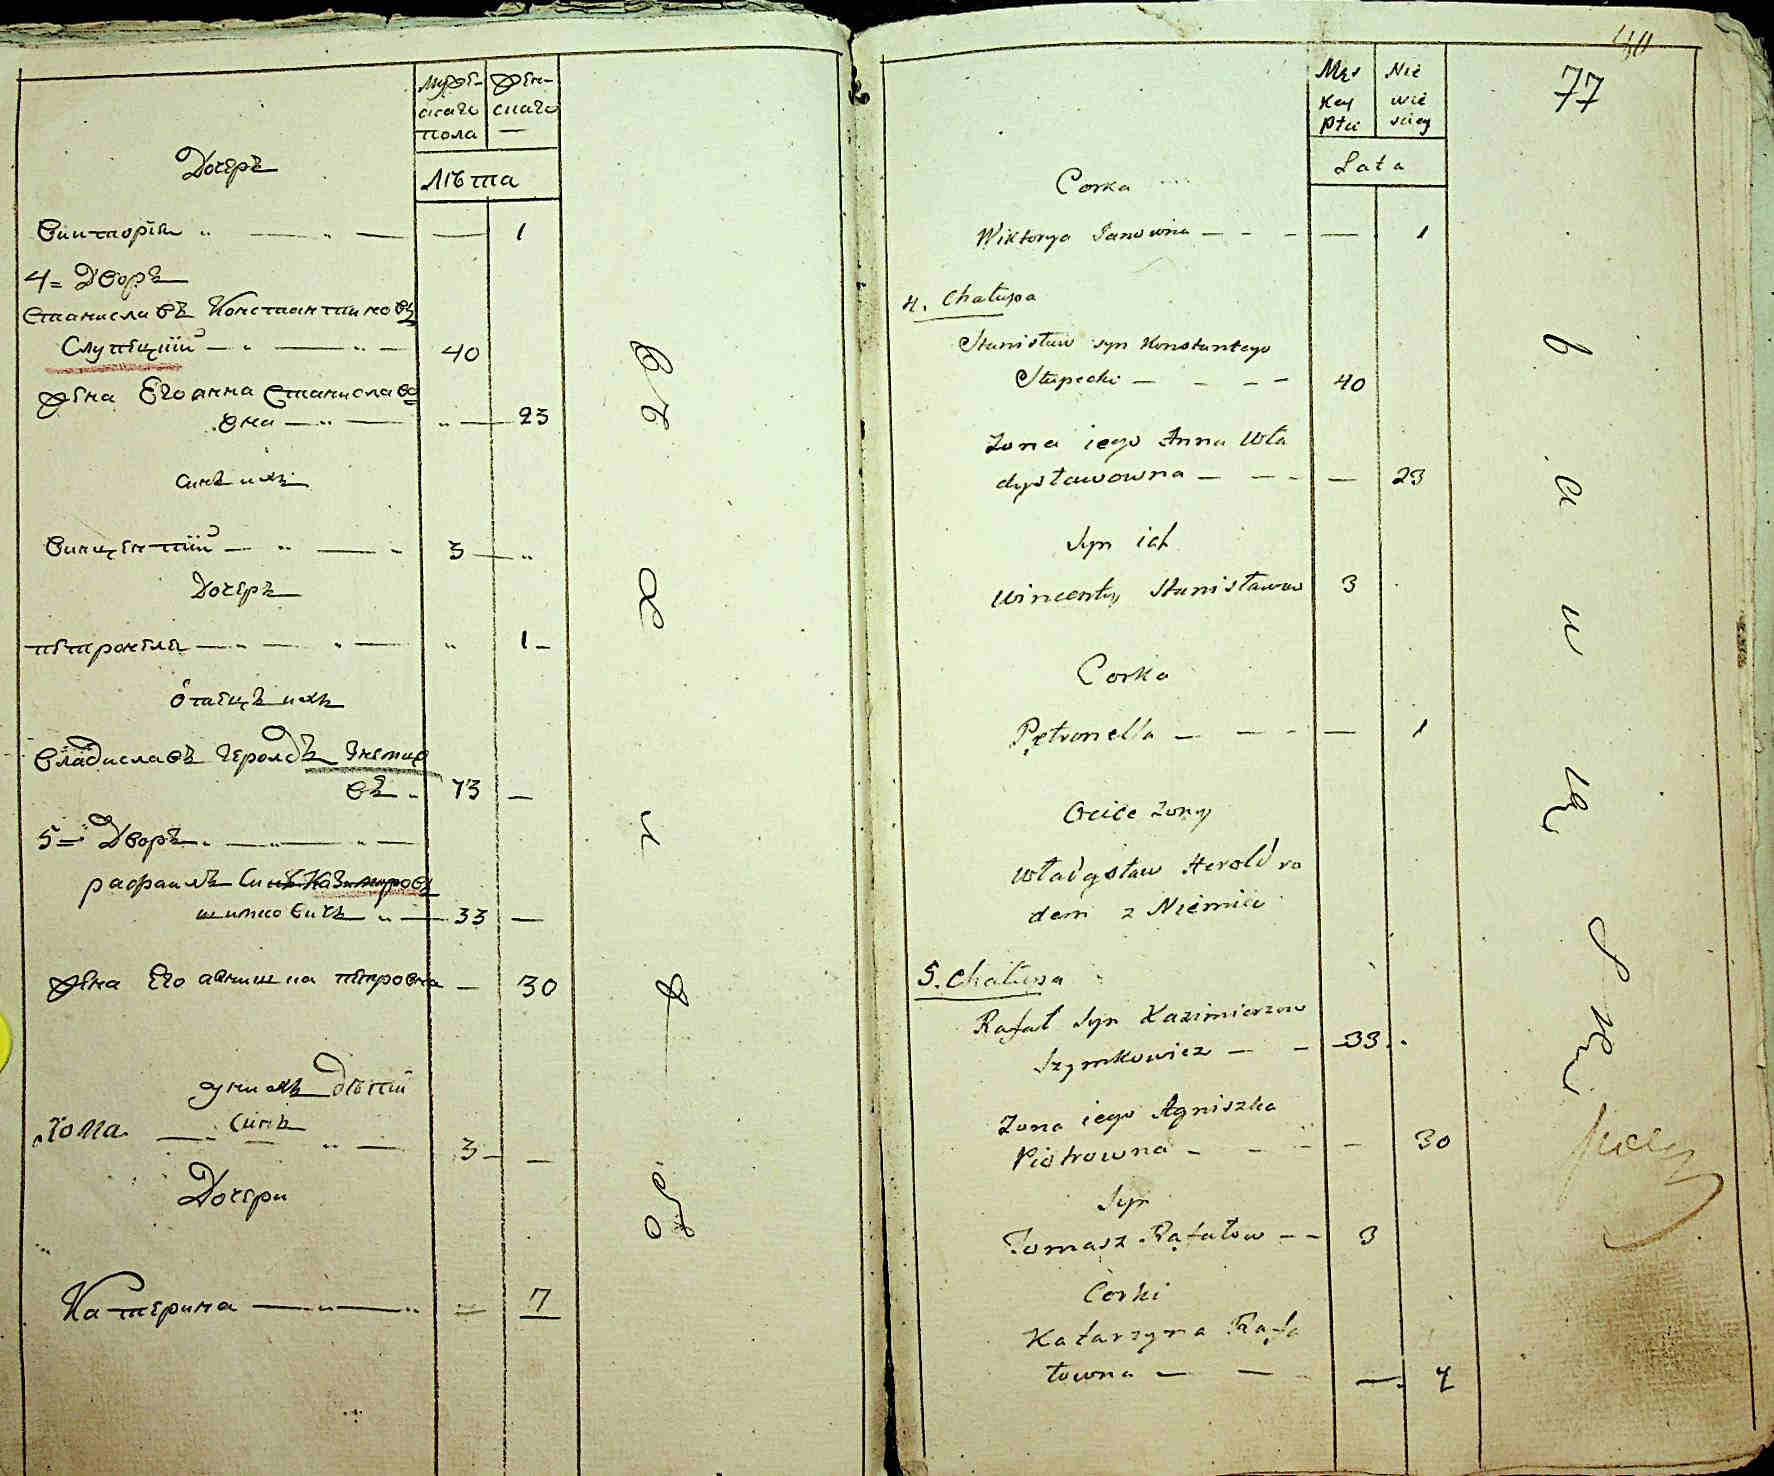 Дочеръ
Мужескаго пола
Женскаго
Лѣта
Викторія — 1
4= Дворъ
Станиславъ Константиновъ
Слупецкій — 40
Жена Его Анна Станиславо
вна — 23
Синъ ихъ
Винцентій — 3
Дочеръ
Петронеля — 1
Отецъ ихъ
Владиславъ Герольдъ
въ 73 —
5= Дворъ
Рафаилъ Синъ Казимировъ
Шимковичъ — 33 —
Жена Его Агнишка Петровна — 30
у нихъ Дѣти
Синъ
Тома — 3 —
Дочери
Катерина — 7
40
77
Męs
key
płci
Nie
wie
sciey
Lata
Corka
Wiktorya Janowna — 1
4. Chałupa
Stanisław syn Konstantego
Słupecki — 40
Zona iego Anna Wła
dysławowna — 23
Syn ich
Wincenty Stanisławow 3
Corka
Petronella — 1
Oycie Zony
Władysław Herold ro
dem z Niemiec
5. Chałupa
Rafał Syn Kazimierzow
Szymkowicz — 33
Zona iego Agniszka
Piotrowna — 30
Syn
Tomasz Rafałow — 3
Corki
Katarzyna Rafa
łowna — 7